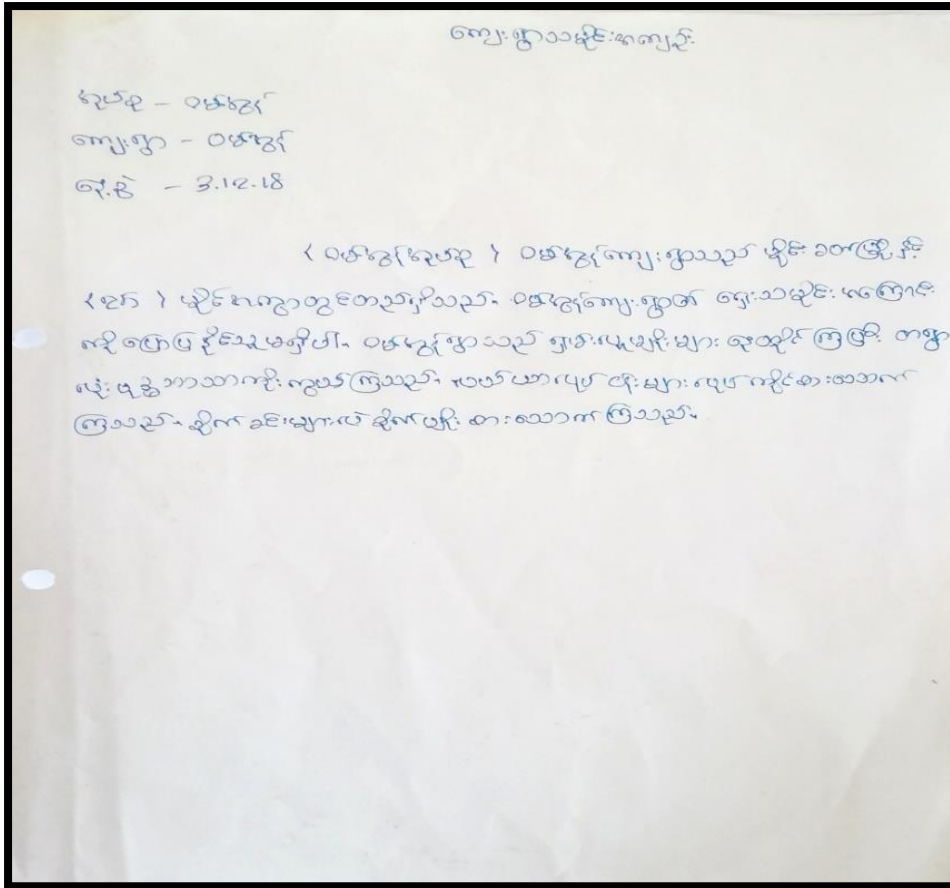 ကျေးရွာသမိုင်းအကျဉ်း
အုပ်စု - ဝမ်အွန်
ကျေးရွာ - ဝမ်အွန်
နေ့စွဲ - 3.12.18
( ဝမ်အွန်အုပ်စု ) ဝမ်အွန်ကျေးရွာသည် မိုင်းခတ်မြို့နှင့်
မိုင်အကွာတွင်တည်ရှိသည်။ ဝမ်အွန်ကျေးရွာ၏ ရှေးသမိုင်းအကြောင်း
ကိုပြောပြနိုင်သူမရှိပါ။ ဝမ်အွန်ရွာသည် ရှမ်းလူမျိုးများ နေထိုင်ကြပြီး တရွာ
လုံးဗုဒ္ဓဘာသာကိုးကွယ်ကြသည်။ လယ်ယာလုပ်ငန်းများလုပ်ကိုင်စားသောက်
ကြသည်။ စိုက်ခင်းများလဲ စိုက်ပျိုးစားသောက်ကြသည်။